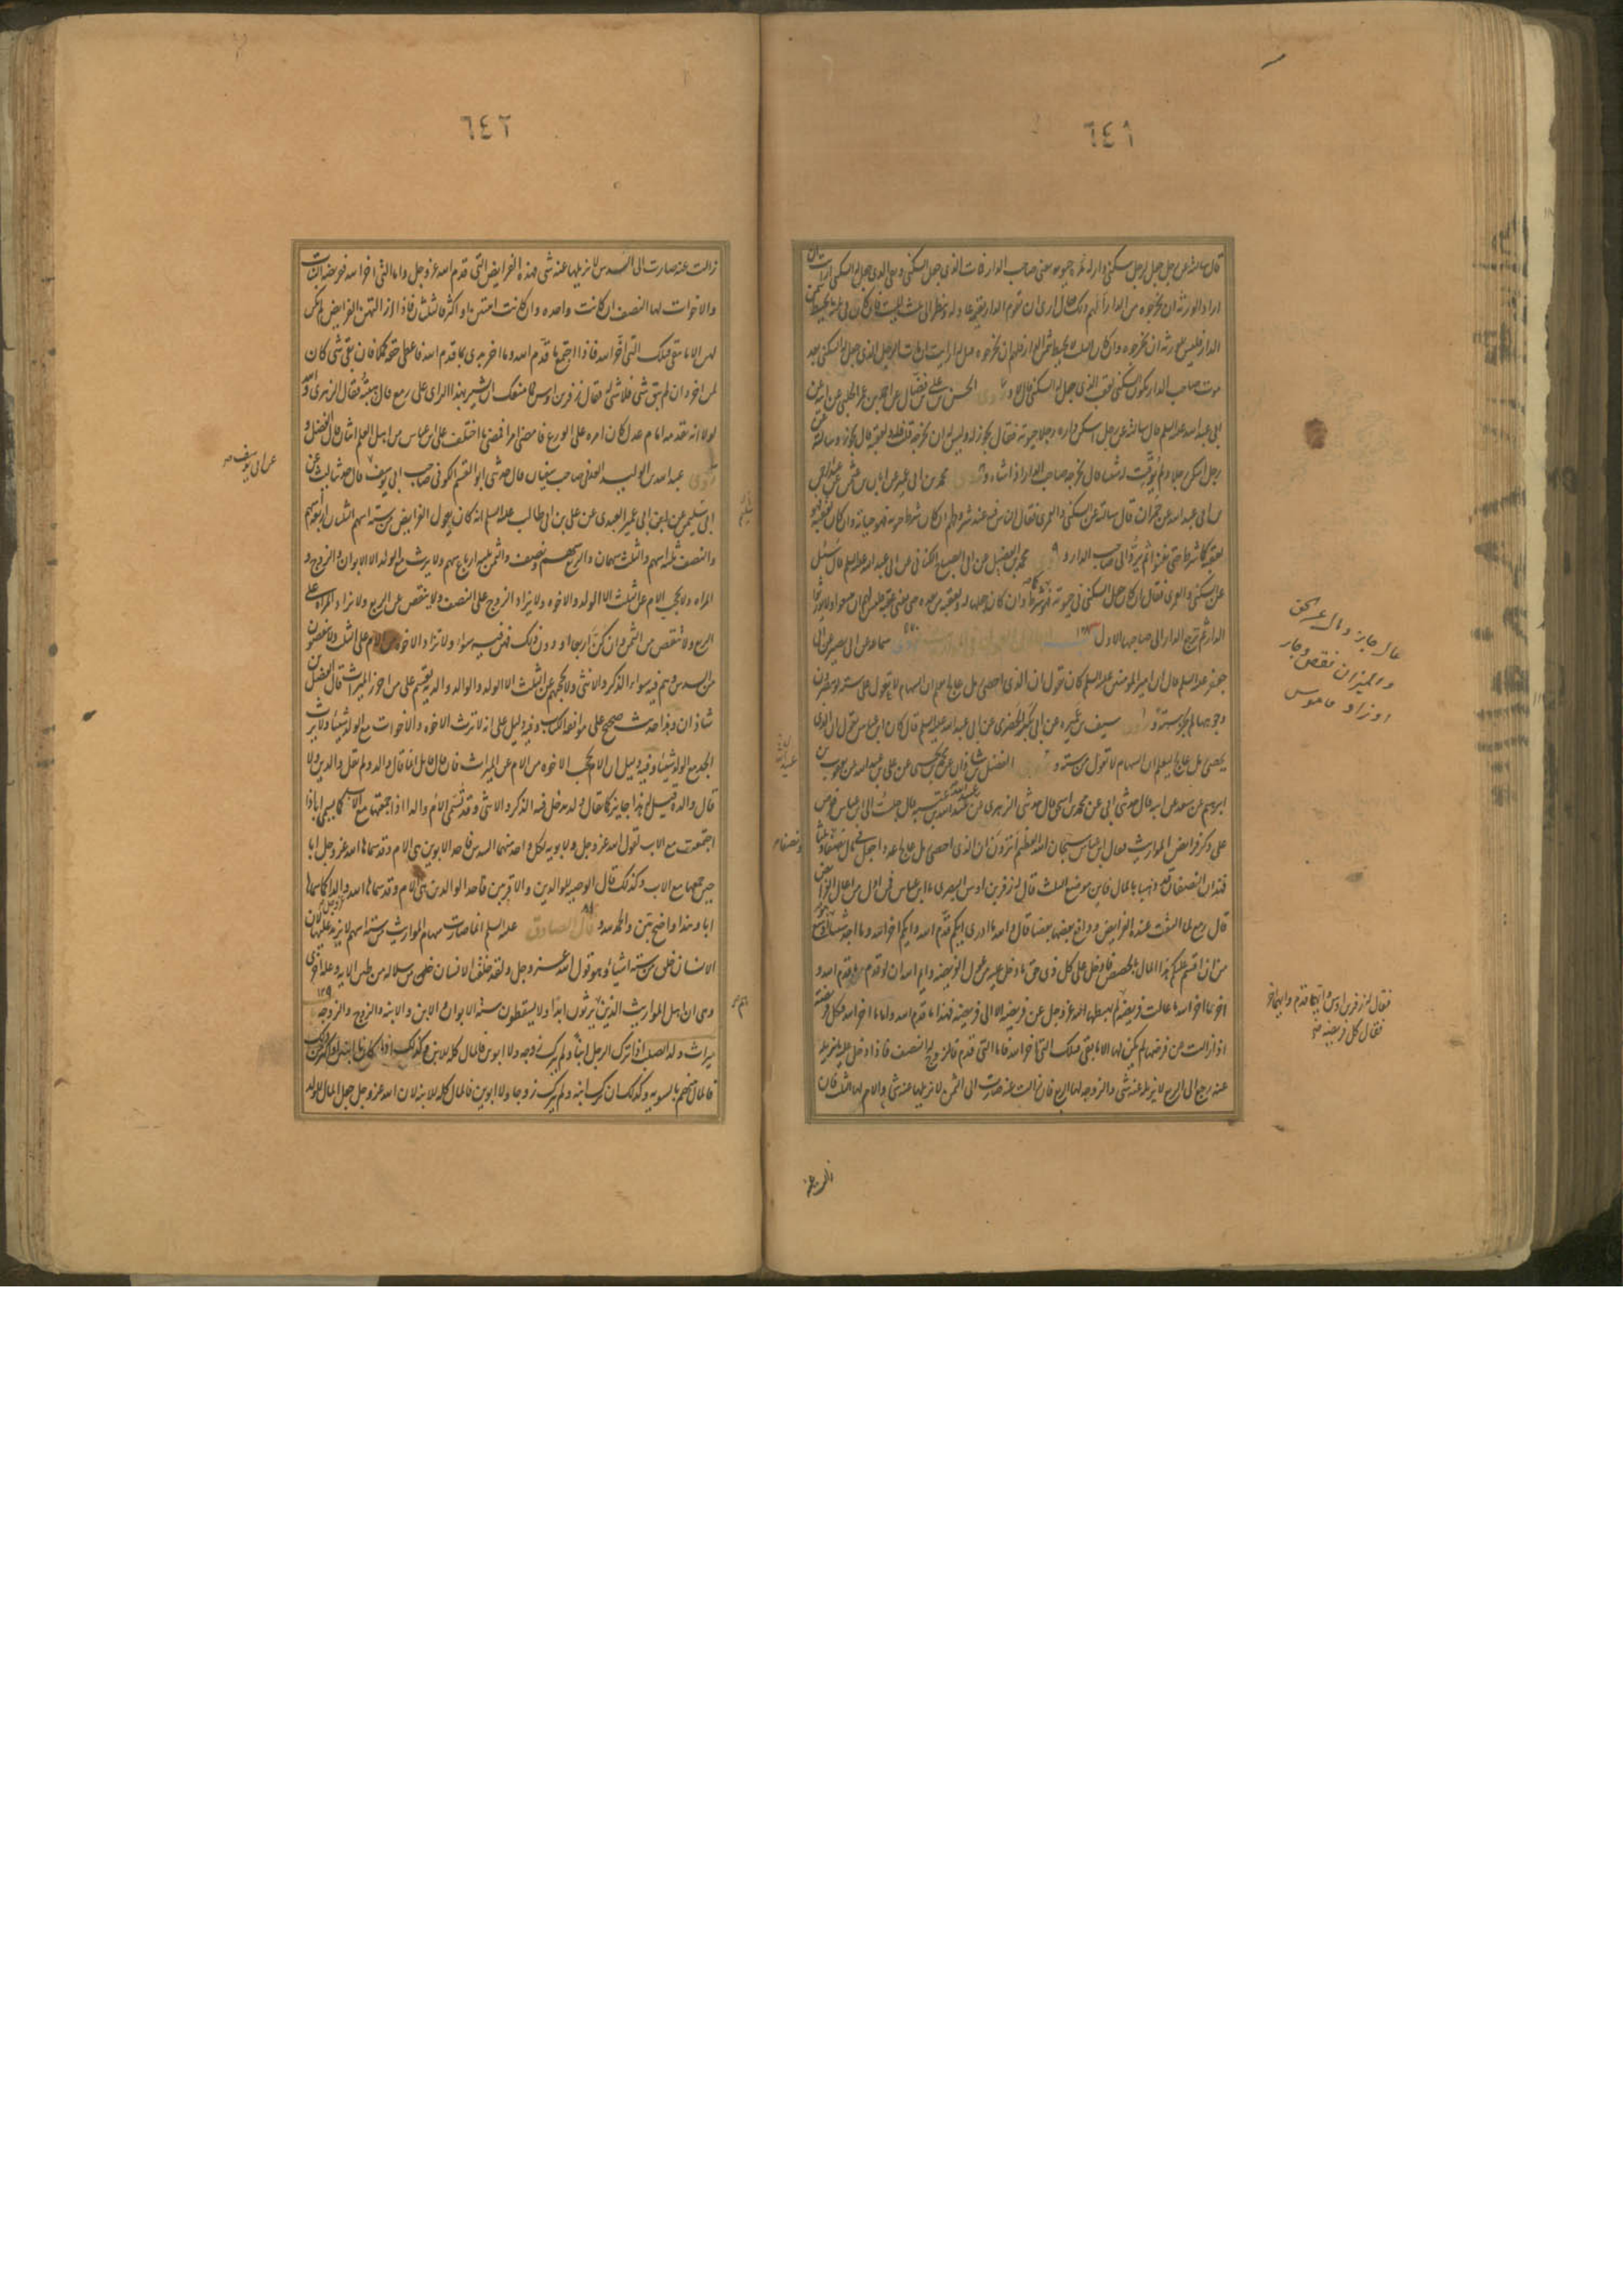 ٦٤١
قال سالته عن رجل جعل لرجل سكنى دار له مدة حيوته يعني صاحب الدار فمات الذي جعل السكنى وبقي الذي جعل له السكنى ارايت ان
اراد الورثة ان يخرجوه من الدار الهم ذلك قال ارى ان تقوم الدار بقيمة عادلة وينظر الى ثلث الميت فان كان في ثلثه ما يحيط بثمن
الدار فليس للورثة ان يخرجوه وان كان الثلث لا يحيط بثمن الدار فلهم ان يخرجوه قيل له ارايت ان مات الرجل الذي جعل له السكنى بعد
موت صاحب الدار يكون السكنى لعقب الذي جعل له السكنى قال لا وروى الحسن بن علي بن فضال عن احمد بن عمر الحلبي عن ابيه عن
ابي عبد الله عليه السلم قال سالته عن رجل اسكن داره رجلا حيوته فقال يجوز له وليس له ان يخرجه قلت فله ولعقبه قال يجوز وسالته عن
رجل اسكن رجلا ولم يوقت له شيئا قال يخرجه صاحب الدار اذا شاء وروى محمد بن ابي عمير عن ابان بن عثمان عن عبد الرحمن
بن ابي عبد الله عن حمران قال سالته عن السكنى والعمرى فقال الناس فيه عند شروطهم ان كان شرط حيوته فهو حياته وان كان لعقبه فهو
لعقبه كما شرط حتى يفنوا ثم يرد الى صاحب الدار وروى محمد بن الفضيل عن ابي الصباح الكناني عن ابي عبد الله عليه السلم قال سئل
عن السكنى والعمرى فقال ان كان جعل السكنى في حيوته فهو كما شرط وان كان جعلها له ولعقبه من بعده حتى يفنى عقبه فليس لهم ان يبيعوا ولا يورثوا
الدار ثم ترجع الدار الى صاحبها الاول
جعفر عليه السلم قال ان امير المومنين عليه السلم كان يقول ان الذي احصى رمل عالج يعلم ان السهام لا تعول على ستة لو يبصرون
وجوهها لم تجز ستة وروى سيف بن عميرة عن ابي بكر الحضرمي عن ابي عبد الله عليه السلم قال كان ابن عباس يقول ان الذي
يحصي رمل عالج ليعلم ان السهام لا تعول من ستة وروى الفضل بن شاذان عن محمد بن يحيى عن علي بن عبد الله عن يعقوب بن
ابرهيم بن سعد عن ابيه قال حدثني ابي عن محمد بن اسحق قال حدثني الزهري عن عبيد الله بن عبد الله بن عتبة قال جلست الى ابن عباس فعرض
علي ذكر فرائض المواريث فقال ابن عباس سبحان الله العظيم اترون ان الذي احصى رمل عالج عددا جعل في مال نصفا وثلثا
فهذان النصفان قد ذهبا بالمال فاين موضع الثلث فقال له زفر بن اوس البصري يا ابن عباس فمن اول من اعال الفرائض
قال رمع لما التفت عنده الفرائض ودافع بعضها بعضا قال والله ما ادري ايكم قدم الله وايكم اخر الله وما اجد شيئا هو اوسع
من ان اقسم عليكم هذا المال بالحصص فادخل على كل ذي حق ما دخل عليه من عول الفريضة وايم الله ان لو قدم من قدم الله و
اخر من اخر الله ما عالت فريضة لم يهبطها الله عز وجل عن فريضة الا الى فريضة فهذا ما قدم الله واما ما اخر الله فكل فريضة
اذا زالت عن فرضها لم يكن لها الا ما بقي فتلك التي اخر الله فاما التي قدم فالزوج له النصف فاذا دخل عليه ما يزيله
عنه رجع الى الربع لا يزيله عنه شئ والزوجة لها الربع فان زالت عنه صارت الى الثمن لا يزيلها عنه شئ والام لها الثلث فان
عال جار ومال عن الحق
والميزان نقص وجار
او زاد قاموس
فقال له زفر بن اوس وايها قدم وايها اخر
فقال كل فريضة
ونصفا
٦٤٢
زالت عنه صارت الى السدس لا يزيلها عنه شئ فهذه الفرايض التي قدم الله عز وجل واما التي اخر الله ففريضة البنات
والاخوات لها النصف ان كانت واحدة وان كانت اثنتين او اكثر فالثلثان فاذا ازالتهن الفرايض لم يكن
لهن الا ما بقي فتلك التي اخر الله فاذا اجتمع ما قدم الله وما اخر بدئ بما قدم الله فاعطي حقه كملا فان بقي شئ كان
لمن اخر وان لم يبق شئ فلا شئ له فقال زفر بن اوس فما منعك ان تشير بهذا الراي على رمع قال هبته فقال الزهري والله
لولا انه تقدمه امام عدل كان امره على الورع فامضى امرا فمضى ما اختلف على ابن عباس من اهل العلم اثنان قال الفضل و
روى عبد الله بن الوليد العدني صاحب سفيان قال حدثني ابو القسم الكوفي صاحب ابي يوسف قال حدثنا ليث بن
ابي سليم عن ابي عمر العبدي عن علي بن ابي طالب عليه السلم انه كان يقول الفرايض من ستة اسهم الثلثان اربعة اسهم
والنصف ثلثة اسهم والثلث سهمان والربع سهم ونصف والثمن ثلثة ارباع سهم ولا يرث مع الولد الا الابوان والزوج و
المراه ولا يحجب الام عن الثلث الا الولد والاخوة ولا يزاد الزوج على النصف ولا ينقص عن الربع ولا تزاد المراه على
الربع ولا تنقص من الثمن وان كن اربعا او دون ذلك فهن فيه سواء ولا تزاد الاخوة من الام على الثلث ولا ينقصون
من السدس وهم فيه سواء الذكر والانثى ولا يحجبهم عن الثلث الا الولد والوالد والدية يقسم على من احرز الميراث قال الفضل بن
شاذان وهذا حديث صحيح على موافقة الكتاب وفيه دليل على انه لا يرث الاخوة والاخوات مع الولد شيئا ولا يرث
الجد مع الولد شيئا وفيه دليل ان الام تحجب الاخوة من الام عن الميراث فان قال قائل انما قال والد ولم يقل والدين ولا
قال والدة قيل له هذا جايز كما يقال ولد يدخل فيه الذكر والانثى وقد تسمى الام والدا اذا جمعتها مع الاب كما تسمى ابا اذا
اجتمعت مع الاب لقول الله عز وجل ولابويه لكل واحد منهما السدس فاحد الابوين هي الام وقد سماها الله عز وجل ابا
حين جمعها مع الاب وكذلك قال الوصية للوالدين والاقربين فاحد الوالدين هي الام وقد سماها الله والدا كما سماها
ابا وهذا واضح بين والحمد لله وقال الصادق عليه السلم انما صارت سهام المواريث من ستة اسهم لا يزيد عليها لان
الانسان خلق من ستة اشياء وهو قول الله عز وجل ولقد خلقنا الانسان من سلالة من طين الاية وعلة اخرى
وهي ان اهل المواريث الذين يرثون ابدا ولا يسقطون ستة الابوان والابن والابنة والزوج والزوجة
ميراث ولد الصلب اذا ترك الرجل ابنا ولم يترك زوجة ولا ابوين فالمال كله للابن وكذلك
فالمال بينهم بالسوية وكذلك ان ترك ابنة ولم يترك زوجا ولا ابوين فالمال كله للابنة لان الله عز وجل جعل المال للولد
عن ابي يوسف